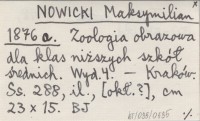 NOWICKI Maksymilian x
1876 a. Zoologia obrazowa
dla klas niższych szkół
średnich. Wyd. 4. — Kraków.
Ss. 288, il., [okł.?], cm
23 x 15. BJ %.